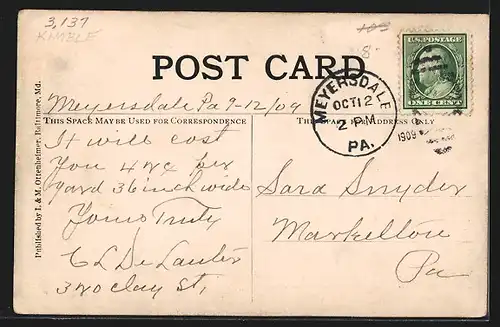 3,137
KIMBLE
POST CARD
MEYERSDALE
OCT 12
2 PM
PA.
1909
U.S. POSTAGE
ONE CENT
Meyersdale Pa 9-12/09
THIS SPACE MAY BE USED FOR CORRESPONDENCE
THIS SPACE FOR ADDRESS ONLY
It will cost
you 42c per
yard 36 inch wide
Yours Truly
C L DeLauter
320 Clay St,
Sara Snyder
Markelton
Pa
Published by I. & M. Ottenheimer, Baltimore, Md.